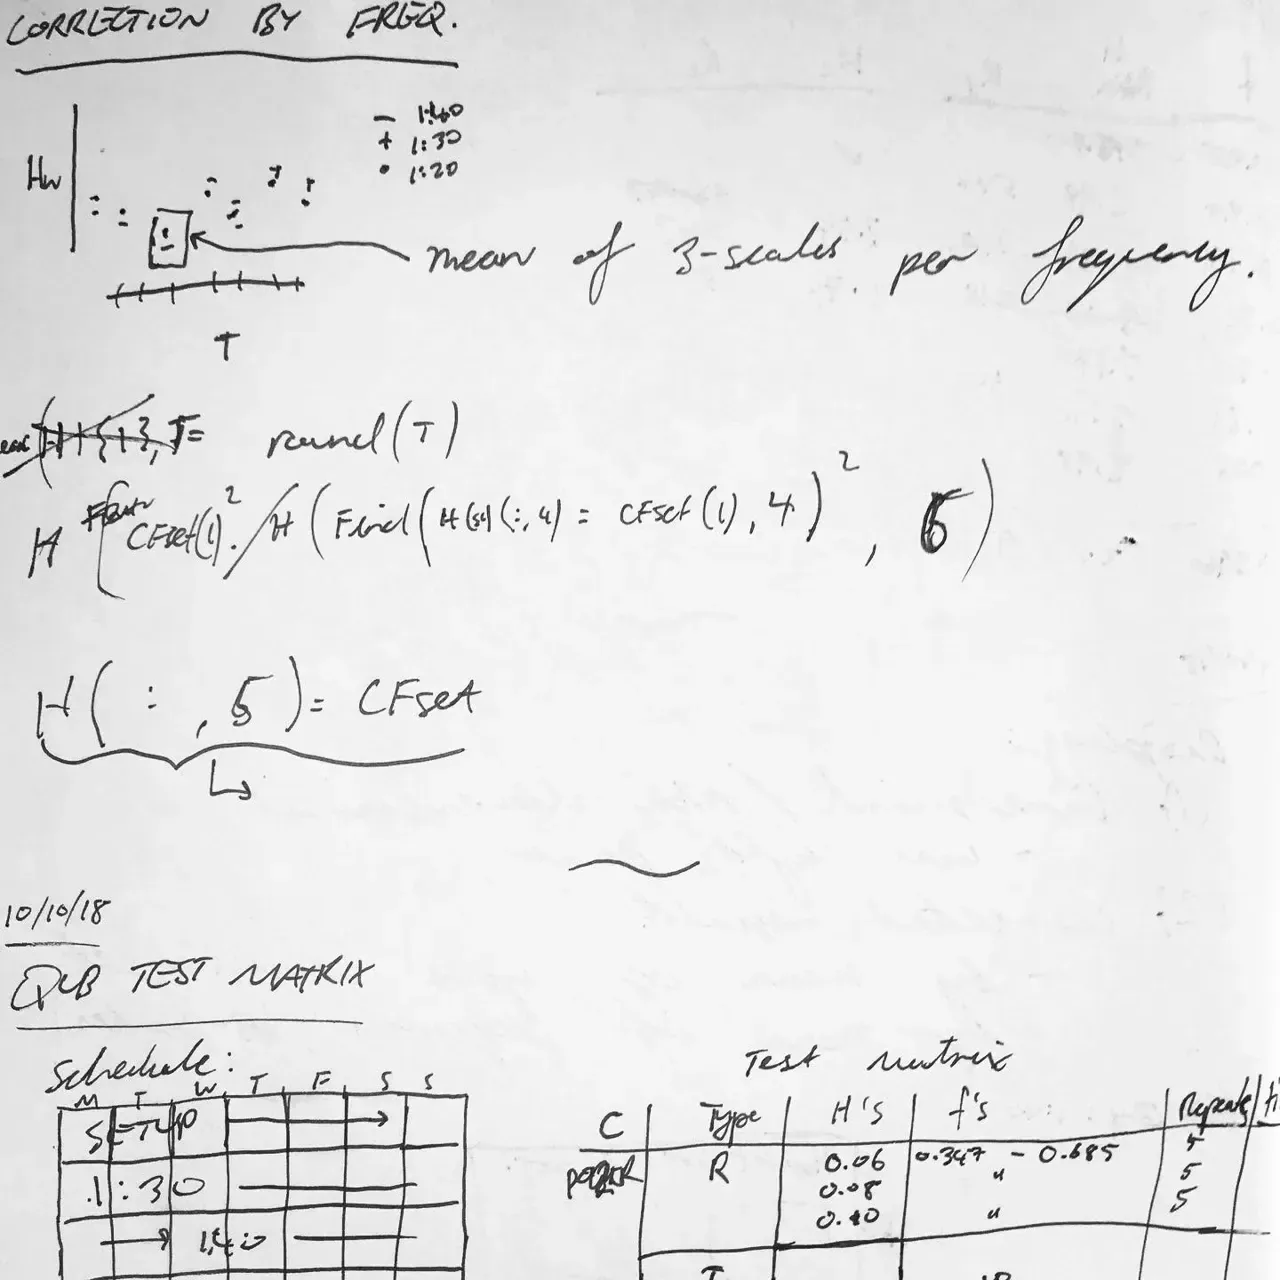 CORRECTION BY FREQ.
Hw
- 1:40
+ 1:30
• 1:20
mean of 3-scales per frequency.
T
T = round(T)
H ( CFset(1)². / H (Find(H{s4}(:,4) = CFset(1),4)², 5)
H( : , 5) = CFset
10/10/18
QUB TEST MATRIX
Schedule:
M T W T F S S
SETUP
1:30
1:40
Test matrix
C Type H's f's Repeats
R 0.06 0.347 - 0.685
0.08 " 5
0.10 " 5